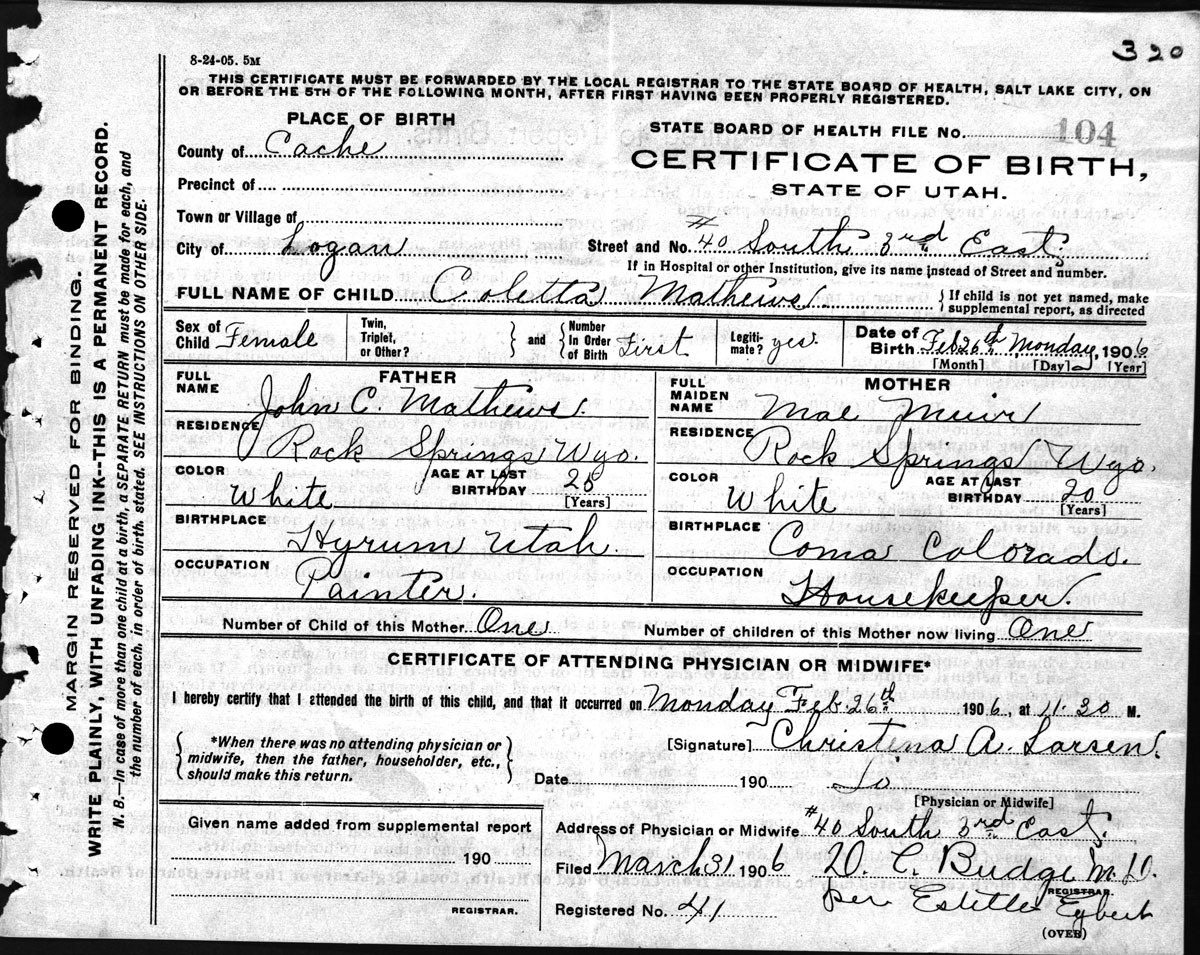 320
8-24-05. 5M
THIS CERTIFICATE MUST BE FORWARDED BY THE LOCAL REGISTRAR TO THE STATE BOARD OF HEALTH, SALT LAKE CITY, ON
OR BEFORE THE 5TH OF THE FOLLOWING MONTH, AFTER FIRST HAVING BEEN PROPERLY REGISTERED.
PLACE OF BIRTH
STATE BOARD OF HEALTH FILE No. 104
County of Cache
CERTIFICATE OF BIRTH,
STATE OF UTAH.
Precinct of
Town or Village of
City of Logan
Street and No. #40 South 3rd East
If in Hospital or other Institution, give its name instead of Street and number.
FULL NAME OF CHILD Coletta Mathews
} If child is not yet named, make
supplemental report, as directed
Sex of
Child Female
Twin,
Triplet,
or Other?
} and {
Number
In Order
of Birth First
Legiti-
mate? yes.
Date of
Birth Feb 26th Monday, 1906
[Month] [Day] [Year]
FATHER
FULL
NAME John C. Mathews.
RESIDENCE Rock Springs Wyo.
COLOR White
AGE AT LAST
BIRTHDAY
[Years]
BIRTHPLACE Hyrum Utah
OCCUPATION Painter.
MOTHER
FULL
MAIDEN
NAME Mae Muir
RESIDENCE Rock Springs Wyo.
COLOR White
AGE AT LAST
BIRTHDAY 20
[Years]
BIRTHPLACE Coma Colorado.
OCCUPATION Housekeeper.
Number of Child of this Mother One
Number of children of this Mother now living One
CERTIFICATE OF ATTENDING PHYSICIAN OR MIDWIFE*
I hereby certify that I attended the birth of this child, and that it occurred on Monday Feb. 26th 1906, at 11.30 M.
{ *When there was no attending physician or
midwife, then the father, householder, etc.,
should make this return. }
[Signature] Christena A. Larsen.
Date 190
[Physician or Midwife]
Given name added from supplemental report
190
REGISTRAR.
Address of Physician or Midwife #40 South 3rd East.
Filed March 31 1906 D. C. Budge M.D.
REGISTRAR.
Registered No. 41
per Estella Egbert
(OVER)
MARGIN RESERVED FOR BINDING.
WRITE PLAINLY, WITH UNFADING INK--THIS IS A PERMANENT RECORD.
N. B.—In case of more than one child at a birth, a SEPARATE RETURN must be made for each, and
the number of each, in order of birth, stated. SEE INSTRUCTIONS ON OTHER SIDE.